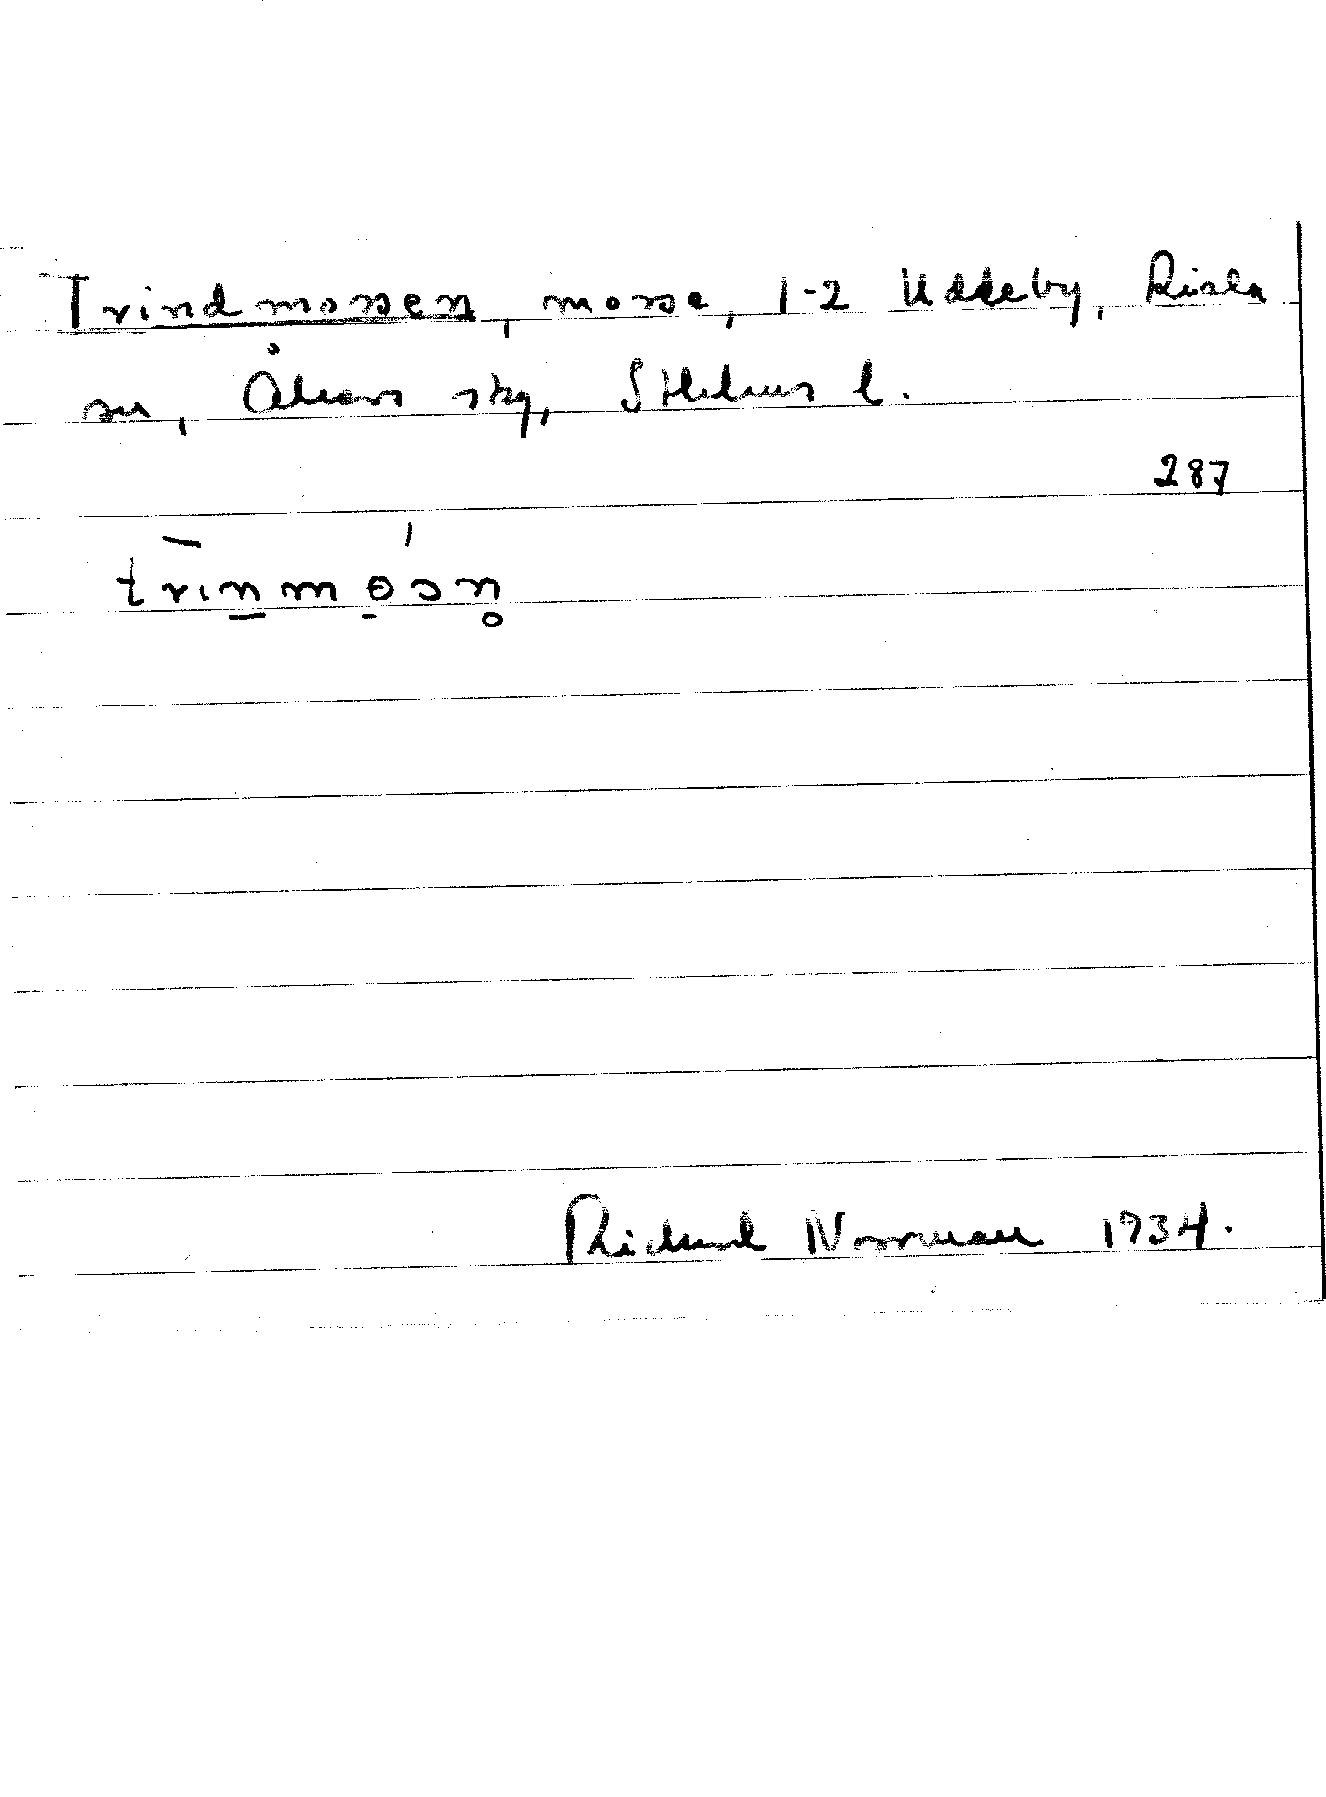 Trindmossen, mosse, 1-2 Uddeby, Riala
sn, Åkers sky, Sthlms l.
287
trinmösn
Richard Norrman 1934.